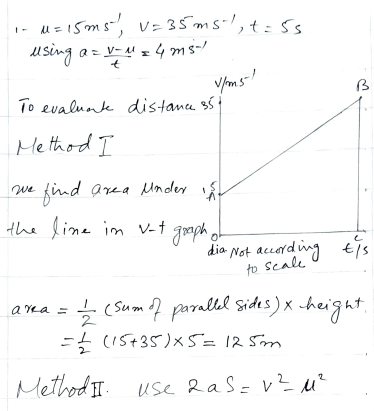 1- u = 15ms⁻¹, V = 35ms⁻¹, t = 5s
using a = (v-u)/t = 4 ms⁻¹
V/ms⁻¹
B
To evaluate distance 35
Method I
we find area under 15
A
the line in v-t graph
O C
dia Not according t/s
to scale
area = 1/2 (sum of parallel sides) x height.
= 1/2 (15+35) x 5 = 125m
Method II. use 2aS = v² - u²